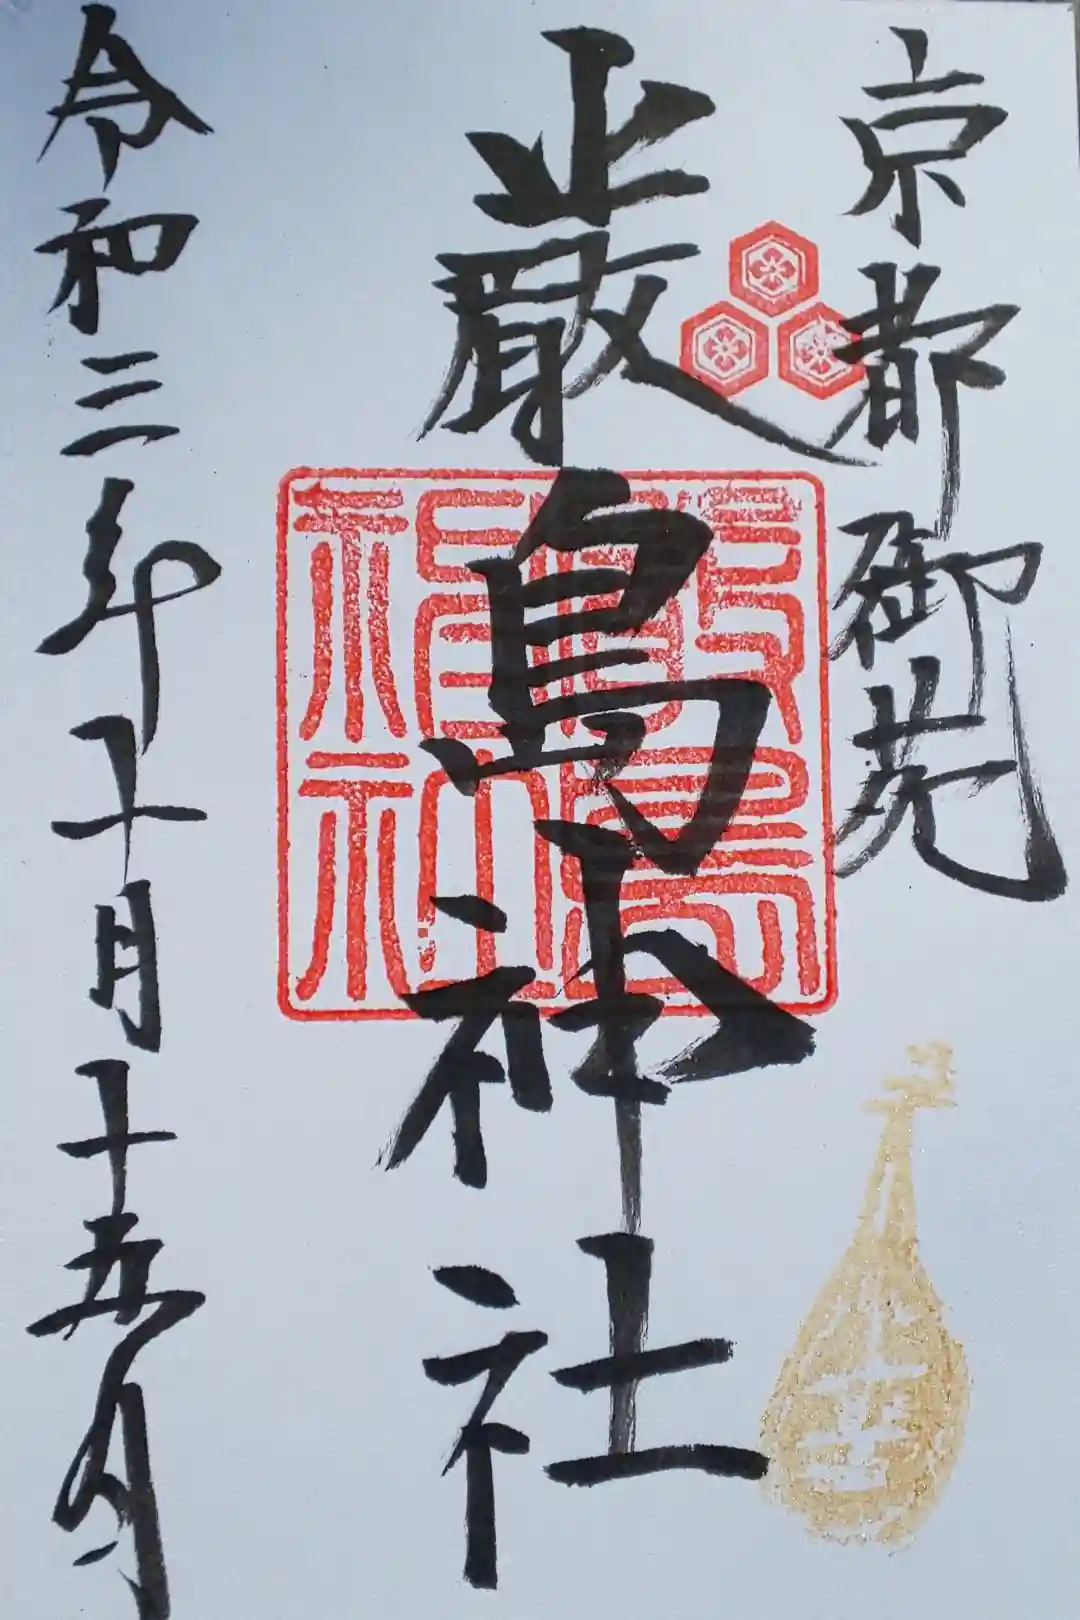 京都御苑
厳島神社
令和三年十月十五日